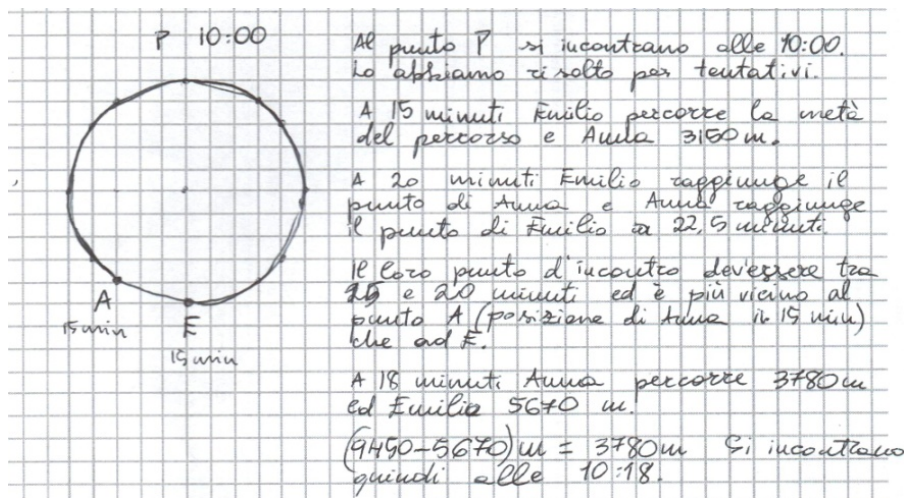 P 10:00
Al punto P si incontrano alle 10:00.
Lo abbiamo risolto per tentativi.
A 15 minuti Emilio percorre la metà
del percorso e Anna 3150 m.
A 20 minuti Emilio raggiunge il
punto di Anna e Anna raggiunge
il punto di Emilio a 22,5 minuti.
Il loro punto d'incontro dev'essere tra
15 e 20 minuti ed è più vicino al
punto A (posizione di Anna in 15 min)
che ad E.
A
15 min
E
15 min
A 18 minuti Anna percorre 3780 m
ed Emilio 5670 m.
(9450-5670) m = 3780 m Si incontrano
quindi alle 10:18.